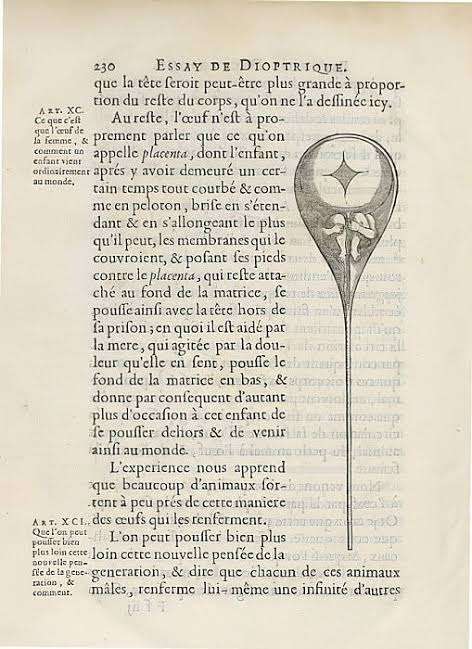 230 ESSAY DE DIOPTRIQUE.
que la tête ſeroit peut-être plus grande à propor-
tion du reſte du corps, qu'on ne l'a deſſinée icy.
ART. XC.
Ce que c'eſt
que l'œuf de
la femme, &
comment un
enfant vient
ordinairement
au monde.
Au reſte, l'œuf n'eſt à pro-
prement parler que ce qu'on
appelle placenta, dont l'enfant,
aprés y avoir demeuré un cer-
tain temps tout courbé & com-
me en peloton, briſe en s'éten-
dant & en s'allongeant le plus
qu'il peut, les membranes qui le
couvroient, & poſant ſes pieds
contre le placenta, qui reſte atta-
ché au fond de la matrice, ſe
pouſſe ainſi avec la tête hors de
ſa priſon; en quoi il eſt aidé par
la mere, qui agitée par la dou-
leur qu'elle en ſent, pouſſe le
fond de la matrice en bas, &
donne par conſequent d'autant
plus d'occaſion à cet enfant de
ſe pouſſer dehors & de venir
ainſi au monde.
L'experience nous apprend
que beaucoup d'animaux ſor-
tent à peu prés de cette maniere
des œufs qui les renferment.
ART. XCI.
Que l'on peut
pouſſer bien
plus loin cette
nouvelle pen-
ſée de la gene-
ration, &
comment.
L'on peut pouſſer bien plus
loin cette nouvelle penſée de la
generation, & dire que chacun de ces animaux
mâles, renferme lui-même une infinité d'autres